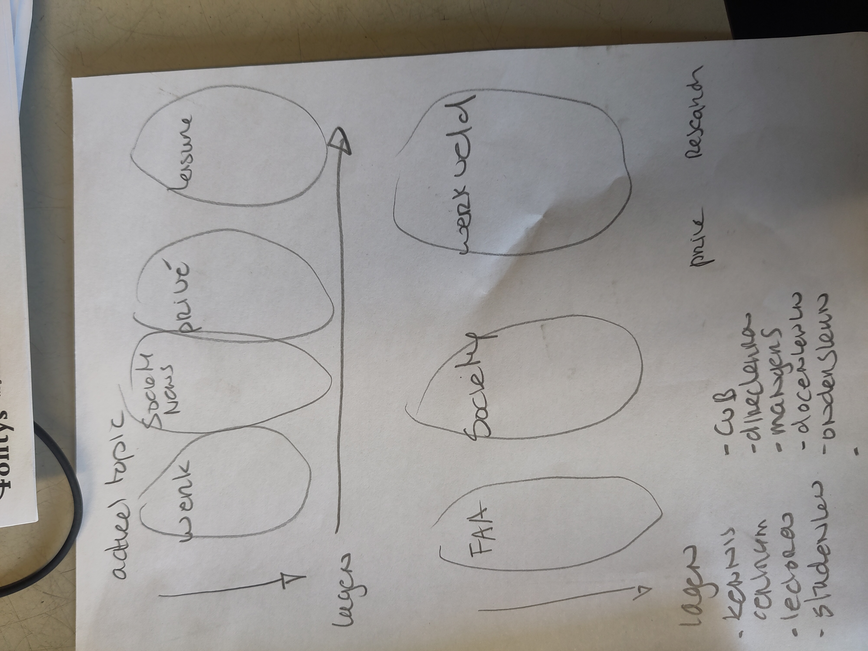 actueel topic
werk
Society
News
privé
leisure
lagen
FAA
Society
werkveld
lagen
- kennis
centrum
- lectoren
- studenten
- CvB
- directeuren
- managers
- docenten
prive
Research
Fontys